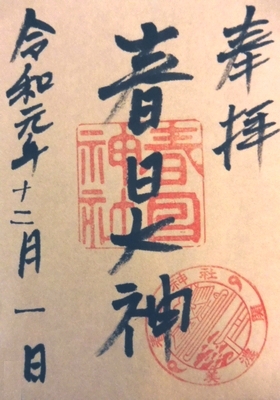 奉拝
春日大神
春日神社
令和元年十二月一日